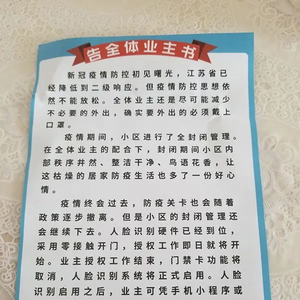 告全体业主书
新冠疫情防控初见曙光，江苏省已
经降低到二级响应。但疫情防控思想依
然不能放松。全体业主还是尽可能减少
不必要的外出，确要外出的必须戴上
口罩。
疫情期间，小区进行了全封闭管理。
在全体业主的配合下，封闭期间小区内
部秩序井然、整洁干净、鸟语花香，让
这枯燥的居家防疫生活也多了一份好心
情。
疫情终会过去，防疫关卡也会随着
政策逐步撤离。但是小区的封闭管理还
会继续下去。人脸识别硬件已经到位，
采用零接触开门，授权工作即日就将开
始。业主授权工作结束，门禁卡功能将
取消，人脸识别系统将正式启用。人脸
识别启用之后，业主可凭手机小程序或